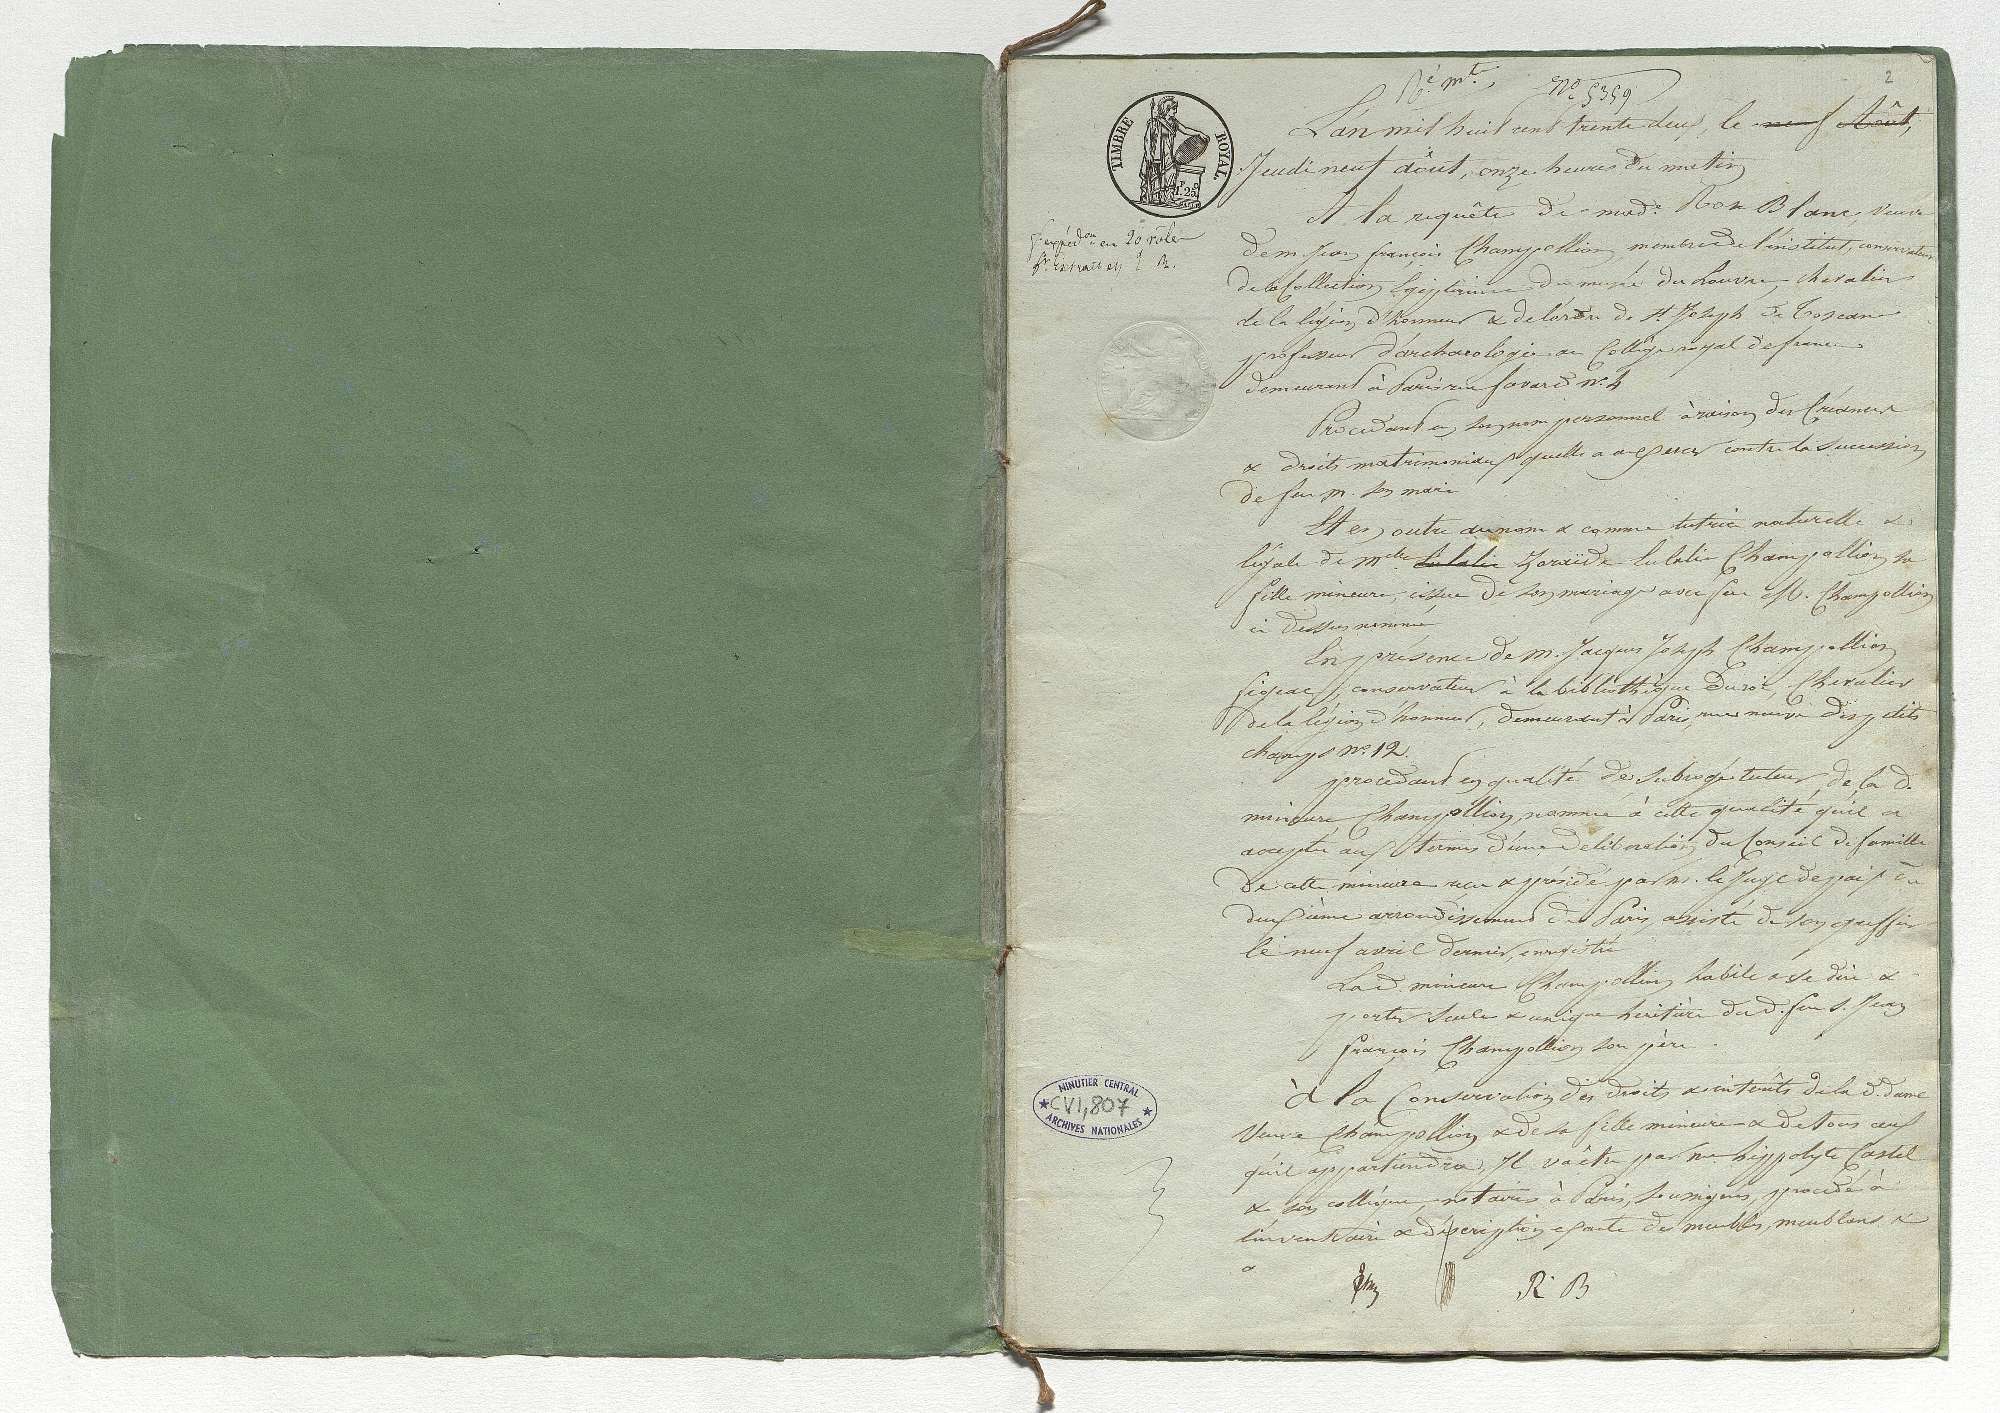 2
Ré mte
No 5359
TIMBRE ROYAL
1.F 25c
L'an mil huit cent trente deux, le neuf Août,
Jeudi neuf août, onze heures du matin
A la requête de made Rose Blanc, veuve
de m. Jean françois Champollion membre de l'institut, conservateur
de la Collection Egyptienne du musée du Louvre, chevalier
de la légion d'honneur & de l'ordre de St Joseph de Toscane
professeur d'archaeologie au Collège royal de france
demeurant à Paris rue favard no. 4
en 20 rôles
extrait en 2 R.
Procédant en son nom personnel à raison des Créances
& droits matrimoniaux qu'elle a à exercer contre la succession
de feu m. son mari
Et en outre au nom & comme tutrice naturelle &
légale de Mlle Eulalie Zoraïde Eulalie Champollion, sa
fille mineure, issue de son mariage avec feu M. Champollion
ci dessus nommé
En présence de m. Jacques Joseph Champollion
figeac, conservateur à la bibliothèque du roi, Chevalier
de la légion d'honneur, demeurant à Paris, rue neuve des petits
champs no. 12.
procédant en qualité de subrogé tuteur de la d.
mineure Champollion, nommé à cette qualité qu'il a
acceptée aux termes d'une délibération du Conseil de famille
de cette mineure reçu & présidé par m. le Juge de paix du
deuxième arrondissement de Paris, assisté de son greffier
le neuf avril dernier, enregistré
La d. mineure Champollion habile à se dire &
porter seule & unique héritière du d. feu s. Jean
françois Champollion son père.
à la Conservation des droits & intérêts de la d. dame
Veuve Champollion & de sa fille mineure & de tous ceux
qu'il appartiendra, Il va être par me hippolyte Castel
& son collègue, notaires à Paris, soussignés, procédé à
l'inventaire & description exacte des meubles, meublans &
MINUTIER CENTRAL
CVI, 807
ARCHIVES NATIONALES
R B